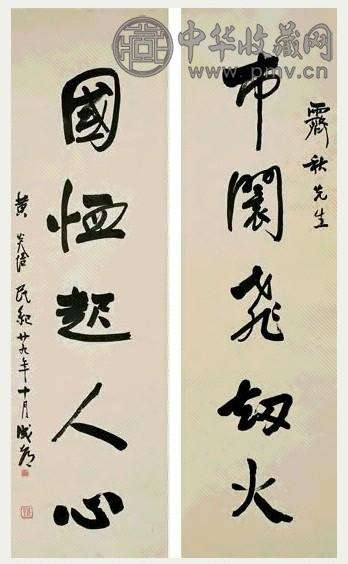 中华收藏网
www.pmv.cn
霽秋先生
市闤飛劫火
國恤起人心
黃炎培 民紀廿九年十月成都